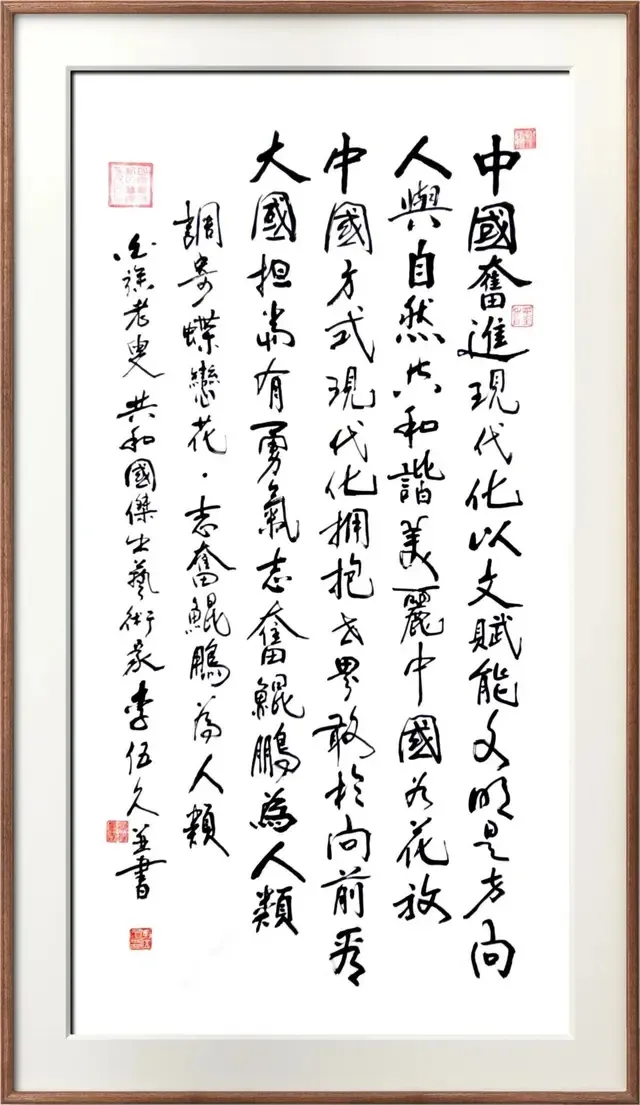 中國奮進現代化以文賦能文明是方向
人與自然共和諧美麗中國花放
中國方式現代化拥抱世界敢於向前看
大國担當有勇氣志奮鯤鵬為人類
調寄蝶戀花·志奮鯤鵬為人類
老叟 共和國傑出藝術家李伍久並書